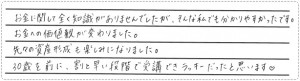 お金に関して全く知識がありませんでしたが、そんな私でも分かりやすかったです。
お金への価値観が変わりました。
先々の資産形成も楽しみになりました。
30歳を前に、割と早い段階で受講できラッキーだったと思います♡